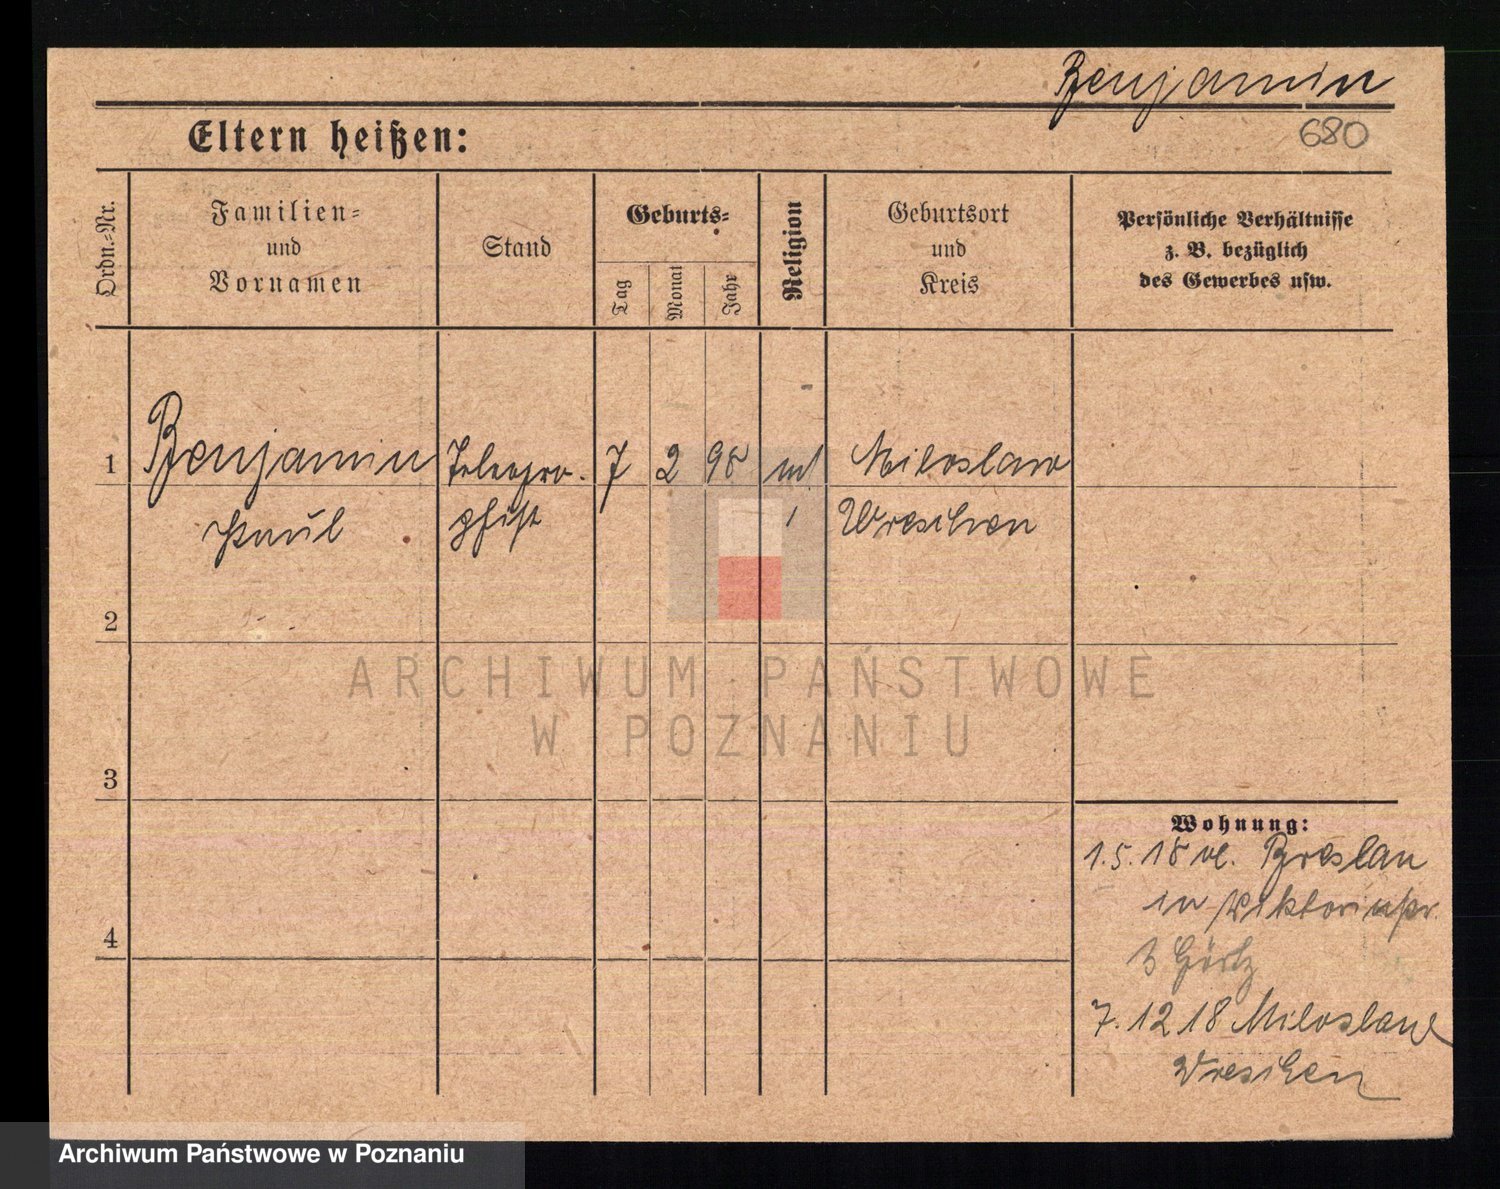 Benjamin
680
Eltern heißen:
Ordn.-Nr.
Familien-
und
Vornamen
Stand
Geburts-
Tag
Monat
Jahr
Religion
Geburtsort
und
Kreis
Persönliche Verhältnisse
z. B. bezüglich
des Gewerbes usw.
1 Benjamin 7 2 98 Miloslaw
Paul Wreschen
2
3
4
Wohnung:
1.5.18 Breslau
in Viktoriastr.
3 Görtz
7.12 18 Miloslaw
Wreschen
ARCHIWUM PAŃSTWOWE
W POZNANIU
Archiwum Państwowe w Poznaniu